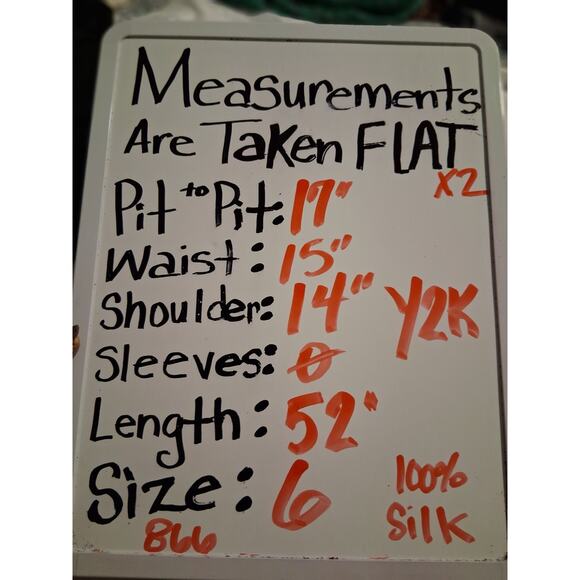 Measurements
Are Taken FLAT
x2
Pit to Pit: 17"
Waist: 15"
Shoulder: 14" Y2K
Sleeves: 0
Length: 52"
Size: 6 100%
Silk
866